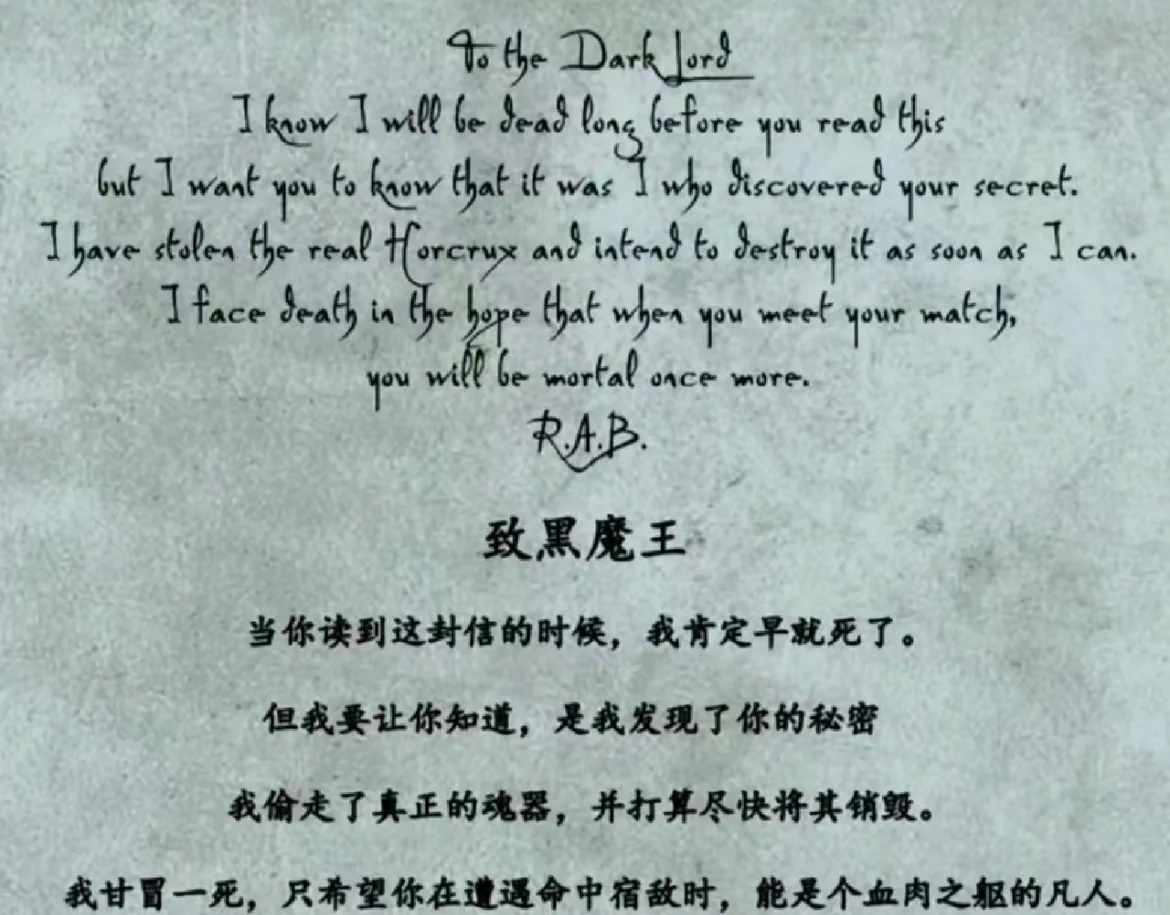 To the Dark Lord
I know I will be dead long before you read this
but I want you to know that it was I who discovered your secret.
I have stolen the real Horcrux and intend to destroy it as soon as I can.
I face death in the hope that when you meet your match,
you will be mortal once more.
R.A.B.
致黑魔王
当你读到这封信的时候，我肯定早就死了。
但我要让你知道，是我发现了你的秘密
我偷走了真正的魂器，并打算尽快将其销毁。
我甘冒一死，只希望你在遭遇命中宿敌时，能是个血肉之躯的凡人。